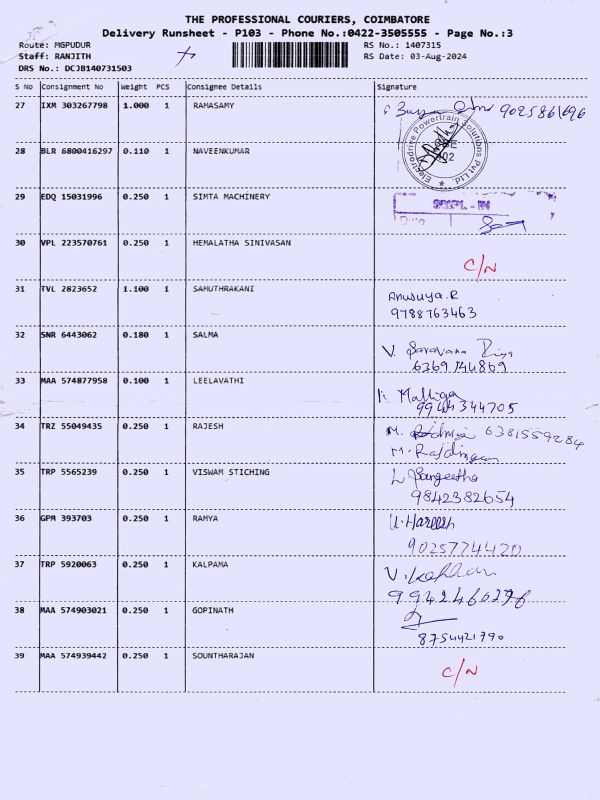 THE PROFESSIONAL COURIERS, COIMBATORE
Delivery Runsheet - P103 - Phone No.:0422-3505555 - Page No.:3
Route: MGPUDUR RS No.: 1407315
Staff: RANJITH RS Date: 03-Aug-2024
DRS No.: DCJB140731503
S No Consignment No Weight PCS Consignee Details Signature
27 IXM 303267798 1.000 1 RAMASAMY 9025861696
Electrodrive Powertrain Solutions Pvt Ltd.
28 BLR 6800416297 0.110 1 NAVEENKUMAR
29 EDQ 15031996 0.250 1 SIMTA MACHINERY
30 VPL 223570761 0.250 1 HEMALATHA SINIVASAN C/N
31 TVL 2823652 1.100 1 SAMUTHRAKANI Anusuya.R
9788763463
32 SNR 6443062 0.180 1 SALMA V. Saravana Priya
6369744869
33 MAA 574877958 0.100 1 LEELAVATHI Malliga
9944344705
34 TRZ 55049435 0.250 1 RAJESH M. 6381559284
M.
35 TRP 5565239 0.250 1 VISWAM STICHING L Sangeetha
9842382654
36 GPM 393703 0.250 1 RAMYA U.Hareesh
9025774420
37 TRP 5920063 0.250 1 KALPAMA V.
9942460276
38 MAA 574903021 0.250 1 GOPINATH
8754421790
39 MAA 574939442 0.250 1 SOUNTHARAJAN C/N